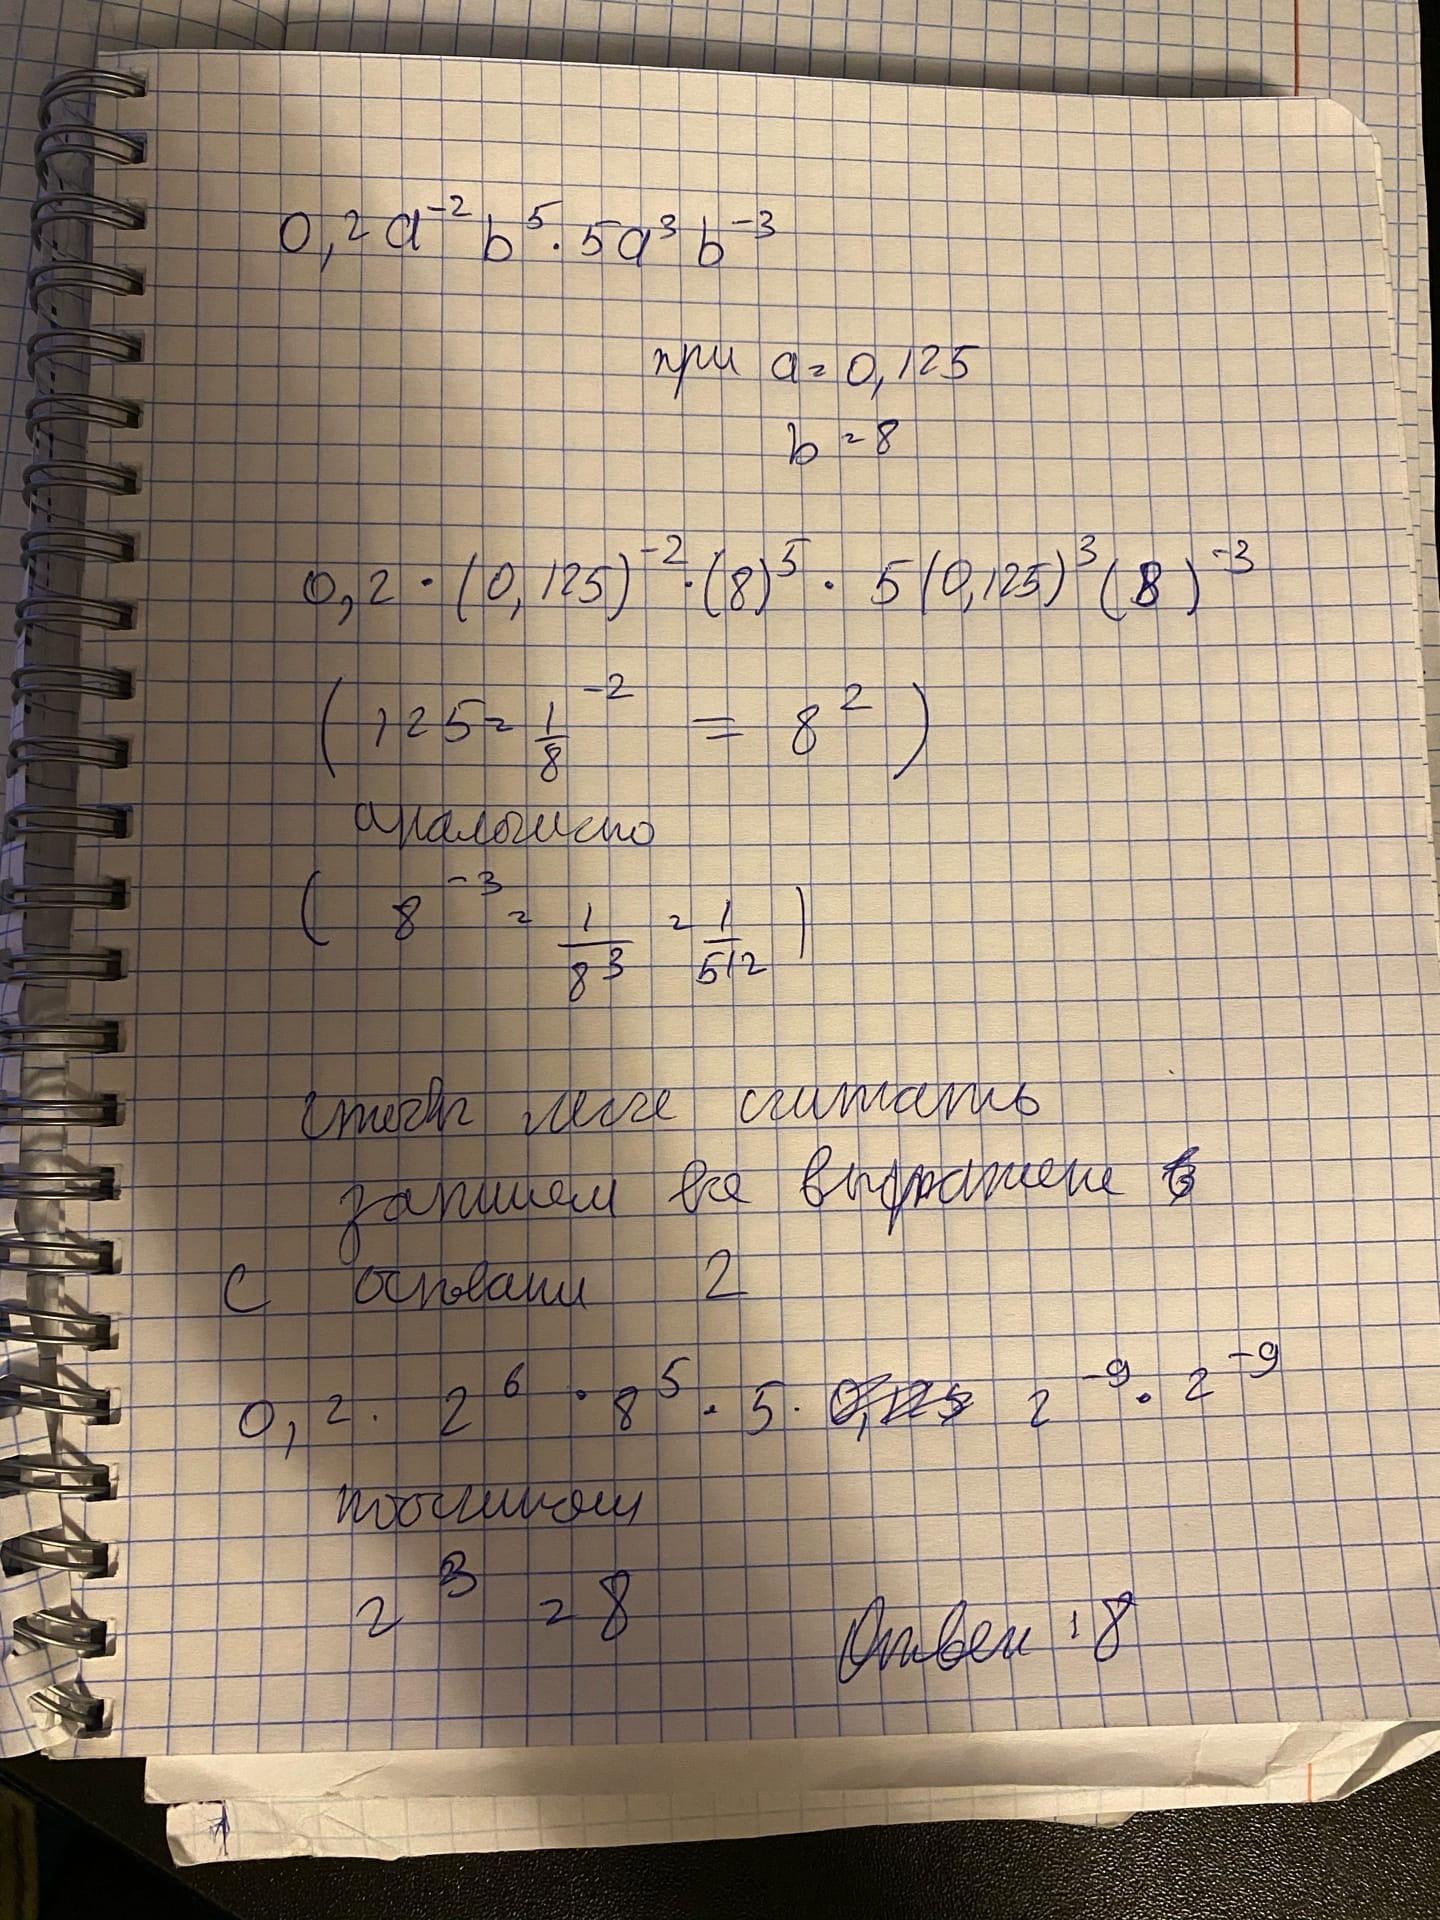 0,2a⁻²b⁵·5a³b⁻³
при a=0,125
b=8
0,2·(0,125)⁻²·(8)⁵·5(0,125)³(8)⁻³
(125=1/8⁻² = 8²)
аналогично
(8⁻³=1/8³=1/512)
легче считать
запишем все выражение
с основани 2
0,2·2⁶·8⁵·5· 2⁻⁹·2⁻⁹
2³=8
Ответ:8